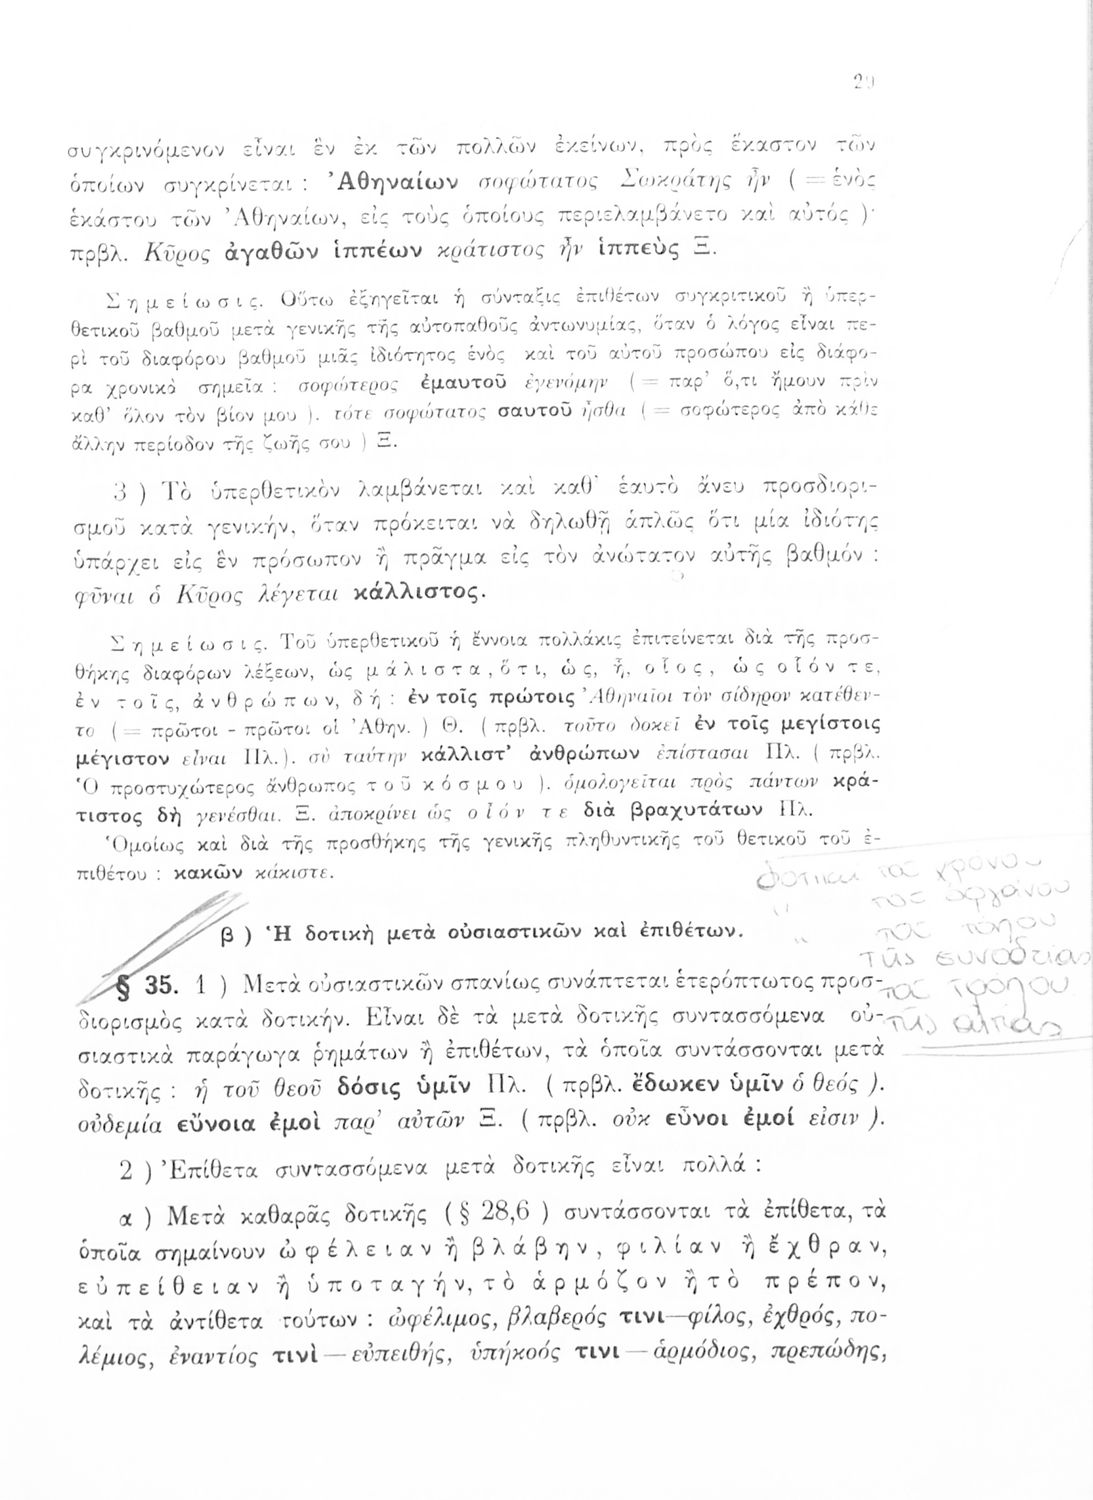 29
συγκρινόμενον εἶναι ἓν ἐκ τῶν πολλῶν ἐκείνων, πρὸς ἕκαστον τῶν
ὁποίων συγκρίνεται : Ἀθηναίων σοφώτατος Σωκράτης ἦν ( = ἑνὸς
ἑκάστου τῶν Ἀθηναίων, εἰς τοὺς ὁποίους περιελαμβάνετο καὶ αὐτός )·
πρβλ. Κῦρος ἀγαθῶν ἱππέων κράτιστος ἦν ἱππεὺς Ξ.
Σημείωσις. Οὕτω ἐξηγεῖται ἡ σύνταξις ἐπιθέτων συγκριτικοῦ ἢ ὑπερ-
θετικοῦ βαθμοῦ μετὰ γενικῆς τῆς αὐτοπαθοῦς ἀντωνυμίας, ὅταν ὁ λόγος εἶναι πε-
ρὶ τοῦ διαφόρου βαθμοῦ μιᾶς ἰδιότητος ἑνὸς καὶ τοῦ αὐτοῦ προσώπου εἰς διάφο-
ρα χρονικὰ σημεῖα : σοφώτερος ἐμαυτοῦ ἐγενόμην ( = παρ' ὅ,τι ἤμουν πρὶν
καθ' ὅλον τὸν βίον μου ). τότε σοφώτατος σαυτοῦ ἦσθα ( = σοφώτερος ἀπὸ κάθε
ἄλλην περίοδον τῆς ζωῆς σου ) Ξ.
3 ) Τὸ ὑπερθετικὸν λαμβάνεται καὶ καθ' ἑαυτὸ ἄνευ προσδιορι-
σμοῦ κατὰ γενικήν, ὅταν πρόκειται νὰ δηλωθῇ ἁπλῶς ὅτι μία ἰδιότης
ὑπάρχει εἰς ἓν πρόσωπον ἢ πρᾶγμα εἰς τὸν ἀνώτατον αὐτῆς βαθμόν :
φῦναι ὁ Κῦρος λέγεται κάλλιστος.
Σημείωσις. Τοῦ ὑπερθετικοῦ ἡ ἔννοια πολλάκις ἐπιτείνεται διὰ τῆς προσ-
θήκης διαφόρων λέξεων, ὡς μάλιστα, ὅτι, ὡς, ᾗ, οἷος, ὡς οἷόν τε,
ἐν τοῖς, ἀνθρώπων, δή : ἐν τοῖς πρώτοις Ἀθηναῖοι τὸν σίδηρον κατέθεν-
το ( = πρῶτοι - πρῶτοι οἱ Ἀθην. ) Θ. ( πρβλ. τοῦτο δοκεῖ ἐν τοῖς μεγίστοις
μέγιστον εἶναι Πλ.). σὺ ταύτην κάλλιστ' ἀνθρώπων ἐπίστασαι Πλ. ( πρβλ.
Ὁ προστυχώτερος ἄνθρωπος τοῦ κόσμου ). ὁμολογεῖται πρὸς πάντων κρά-
τιστος δὴ γενέσθαι. Ξ. ἀποκρίνει ὡς οἷόν τε διὰ βραχυτάτων Πλ.
Ὁμοίως καὶ διὰ τῆς προσθήκης τῆς γενικῆς πληθυντικῆς τοῦ θετικοῦ τοῦ ἐ-
πιθέτου : κακῶν κάκιστε.
δοτικη του χρόνου
" του οργάνου
" του τόπου
της συνοδείας
του τρόπου
της αιτίας
β ) Ἡ δοτικὴ μετὰ οὐσιαστικῶν καὶ ἐπιθέτων.
§ 35. 1 ) Μετὰ οὐσιαστικῶν σπανίως συνάπτεται ἑτερόπτωτος προσ-
διορισμὸς κατὰ δοτικήν. Εἶναι δὲ τὰ μετὰ δοτικῆς συντασσόμενα οὐ-
σιαστικὰ παράγωγα ῥημάτων ἢ ἐπιθέτων, τὰ ὁποῖα συντάσσονται μετὰ
δοτικῆς : ἡ τοῦ θεοῦ δόσις ὑμῖν Πλ. ( πρβλ. ἔδωκεν ὑμῖν ὁ θεός ).
οὐδεμία εὔνοια ἐμοὶ παρ' αὐτῶν Ξ. ( πρβλ. οὐκ εὖνοι ἐμοί εἰσιν ).
2 ) Ἐπίθετα συντασσόμενα μετὰ δοτικῆς εἶναι πολλά :
α ) Μετὰ καθαρᾶς δοτικῆς ( § 28,6 ) συντάσσονται τὰ ἐπίθετα, τὰ
ὁποῖα σημαίνουν ὠφέλειαν ἢ βλάβην, φιλίαν ἢ ἔχθραν,
εὐπείθειαν ἢ ὑποταγήν, τὸ ἁρμόζον ἢ τὸ πρέπον,
καὶ τὰ ἀντίθετα τούτων : ὠφέλιμος, βλαβερός τινι—φίλος, ἐχθρός, πο-
λέμιος, ἐναντίος τινὶ — εὐπειθής, ὑπήκοός τινι — ἁρμόδιος, πρεπώδης,